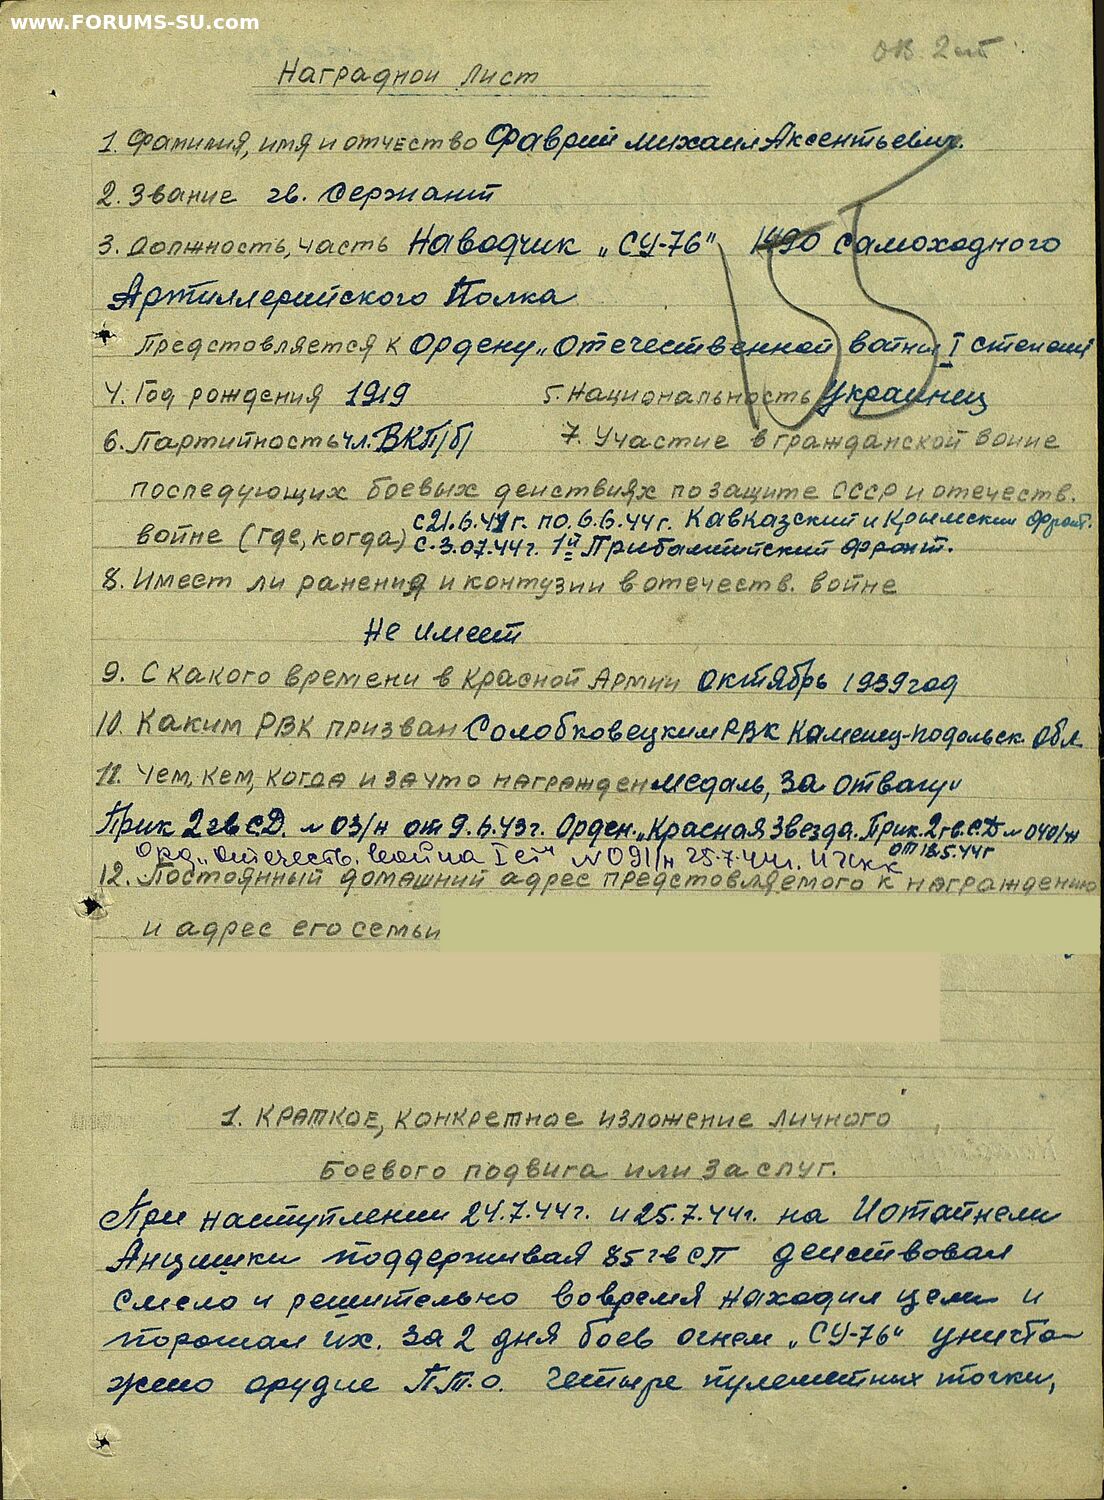 www.FORUMS-SU.com
ОВ. 2 ст
Наградной лист
1. Фамилия, имя и отчество Фаврий михаил Аксентьевич.
2. Звание гв. Сержант
3. Должность, часть Наводчик „СУ-76" 1490 Самоходного
Артиллерийского Полка
Предстовляется к Ордену „Отечественной войны I степени
4. Год рождения 1919 5. Национальность Украинец
6. Партийность чл. ВКП/б/ 7. Участие в гражданской воине
последующих боевых действиях по защите СССР и отечеств.
войне (где, когда) с 21.6.41г. по 6.6.44г. Кавказский и Крымский фронт.
с. 3.07.44г. 1й Прибалтийский фронт.
8. Имеет ли ранения и контузии в отечеств. войне
Не имеет
9. С какого времени в Красной Армии октябрь 1939 год
10. Каким РВК призван Солобковецким РВК Каменец-подольск. обл
11. Чем, кем, когда и за что награжден медаль, за отвагу"
Прик 2 гв СД. № 03/н от 9.6.43г. Орден „Красная Звезда. Прик. 2 гв. СД № 040/н
от 18.5.44г
Орд „отечеств. война I ст" № 091/н 25.7.44г.
12. Постоянный домашний адрес предстовляемого к награждению
и адрес его семьи
1. Краткое, конкретное изложение личного
боевого подвига или заслуг.
При наступлении 24.7.44г. и 25.7.44г. на
поддерживая 85 гв СП действовал
смело и решительно вовремя находил цели и
поражал их. За 2 дня боев огнем „СУ-76" уничто-
жено орудие П.Т.О. четыре пулеметных точки,